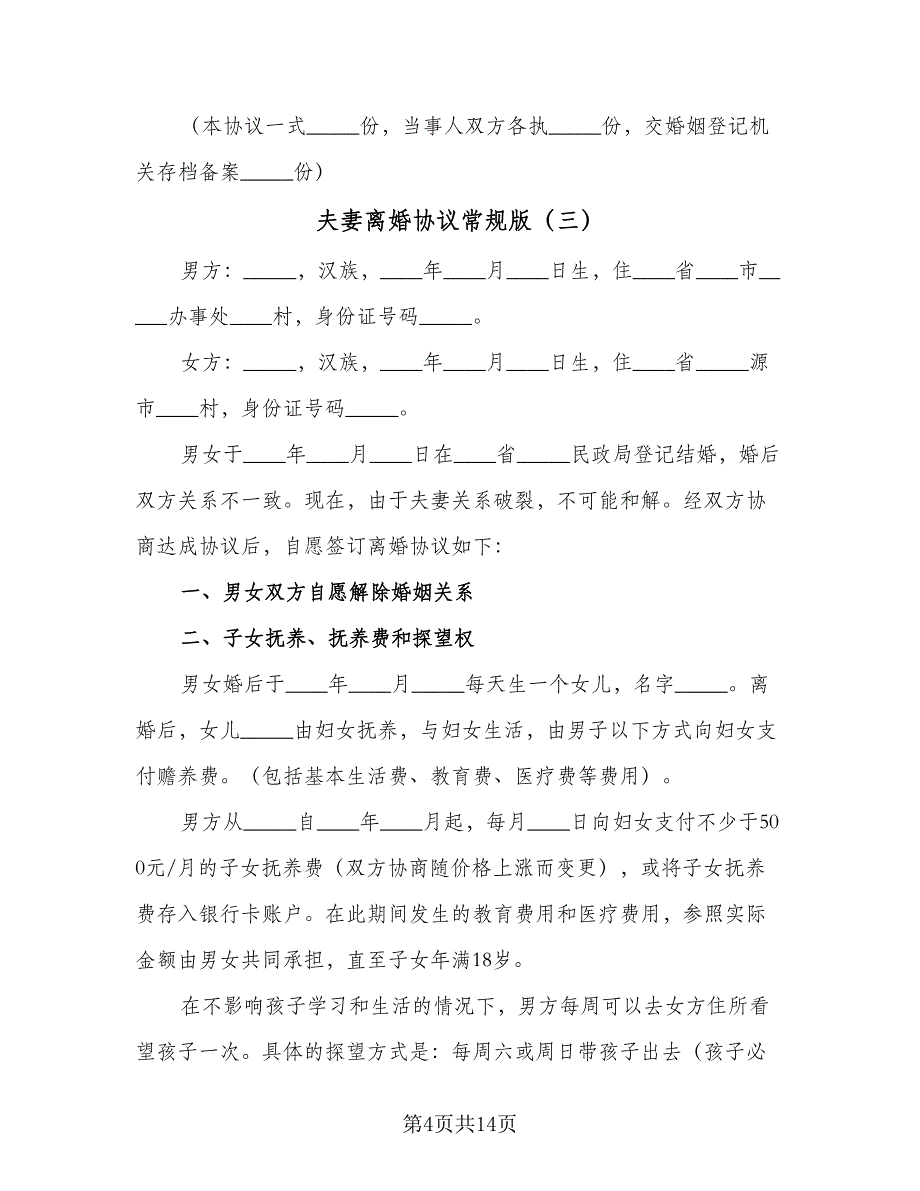 （本协议一式_____份，当事人双方各执_____份，交婚姻登记机
关存档备案_____份）
夫妻离婚协议常规版（三）
男方：_____，汉族，____年____月____日生，住____省____市__
___办事处____村，身份证号码_____。
女方：_____，汉族，____年____月____日生，住____省_____源
市____村，身份证号码_____。
男女于____年____月____日在____省_____民政局登记结婚，婚后
双方关系不一致。现在，由于夫妻关系破裂，不可能和解。经双方协
商达成协议后，自愿签订离婚协议如下：
一、男女双方自愿解除婚姻关系
二、子女抚养、抚养费和探望权
男女婚后于____年____月_____每天生一个女儿，名字_____。离
婚后，女儿_____由妇女抚养，与妇女生活，由男子以下方式向妇女支
付赡养费。（包括基本生活费、教育费、医疗费等费用）。
男方从_____自____年____月起，每月____日向妇女支付不少于50
0元/月的子女抚养费（双方协商随价格上涨而变更），或将子女抚养
费存入银行卡账户。在此期间发生的教育费用和医疗费用，参照实际
金额由男女共同承担，直至子女年满18岁。
在不影响孩子学习和生活的情况下，男方每周可以去女方住所看
望孩子一次。具体的探望方式是：每周六或周日带孩子出去（孩子必
第4页共14页